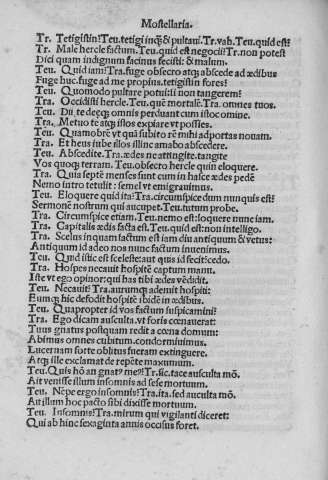 Mostellaria.
Tr. Tetigistin? Teu. tetigi inq̃ & pultaui. Tr. vah. Teu. quid est?
Tr. Male hercle factum. Teu. quid est negocii? Tr. non potest
Dici quam indignum facinus fecisti: & malum.
Teu. Quid iam? Tra. fuge obsecro atq; abscede ab ædibus
Fuge huc. fuge ad me propius. tetigistin fores?
Teu. Quomodo pultare potuisti non tangerem?
Tra. Occidisti hercle. Teu. quẽ mortalẽ. Tra. omnes tuos.
Teu. Dii te deæq; omnis perduant cum istoc omine.
Tra. Metuo te atq; illos expiare vt possies.
Teu. Quamobrẽ vt quã subito rẽ mihi adportas nouam.
Tra. Et heus iube illos illinc amabo abscedere.
Teu. Abscedite. Tra. ædes ne attingite. tangite
Vos quoq; terram. Teu. obsecro hercle quin eloquere.
Tra. Quia septẽ menses sunt cum in hasce ædes pedẽ
Nemo intro tetulit: semel vt emigrauimus.
Teu. Eloquere quid ita? Tra. circumspice dum nunquis est?
Sermonẽ nostrum qui aucupet. Teu. tutum probe.
Tra. Circumspice etiam. Teu. nemo est: loquere nunc iam.
Tra. Capitalis ædis facta est. Teu. quid est: non intelligo.
Tra. Scelus inquam factum est iam diu antiquum & vetus:
Antiquum id adeo nos nunc factum inuenimus.
Teu. Quid istic est sceleste: aut quis id fecit: cedo.
Tra. Hospes necauit hospitẽ captum manu.
Iste vt ego opinor: qui has tibi ædes vẽdidit.
Teu. Necauit? Tra. aurumq; ademit hospiti:
Eumq; hic defodit hospitẽ ibidẽ in ædibus.
Teu. Quapropter id vos factum suspicamini?
Tra. Ego dicam ausculta. vt foris cœnauerat:
Tuus gnatus postquam redit a cœna domum:
Abimus omnes cubitum. condormiuimus.
Lucernam forte oblitus fueram extinguere.
Atq; ille exclamat derepẽte maxumum.
Teu. Quis hõ an gnat⁹ me⁹? Tr. sic. tace ausculta mõ.
Ait venisse illum insomnis ad se se mortuum.
Teu. Nẽpe ergo insomnis? Tra. ita. sed ausculta mõ.
Ait illum hoc pacto sibi dixisse mortuum.
Teu. Insomnis? Tra. mirum qui vigilanti diceret:
Qui ab hinc sexaginta annis occisus foret.